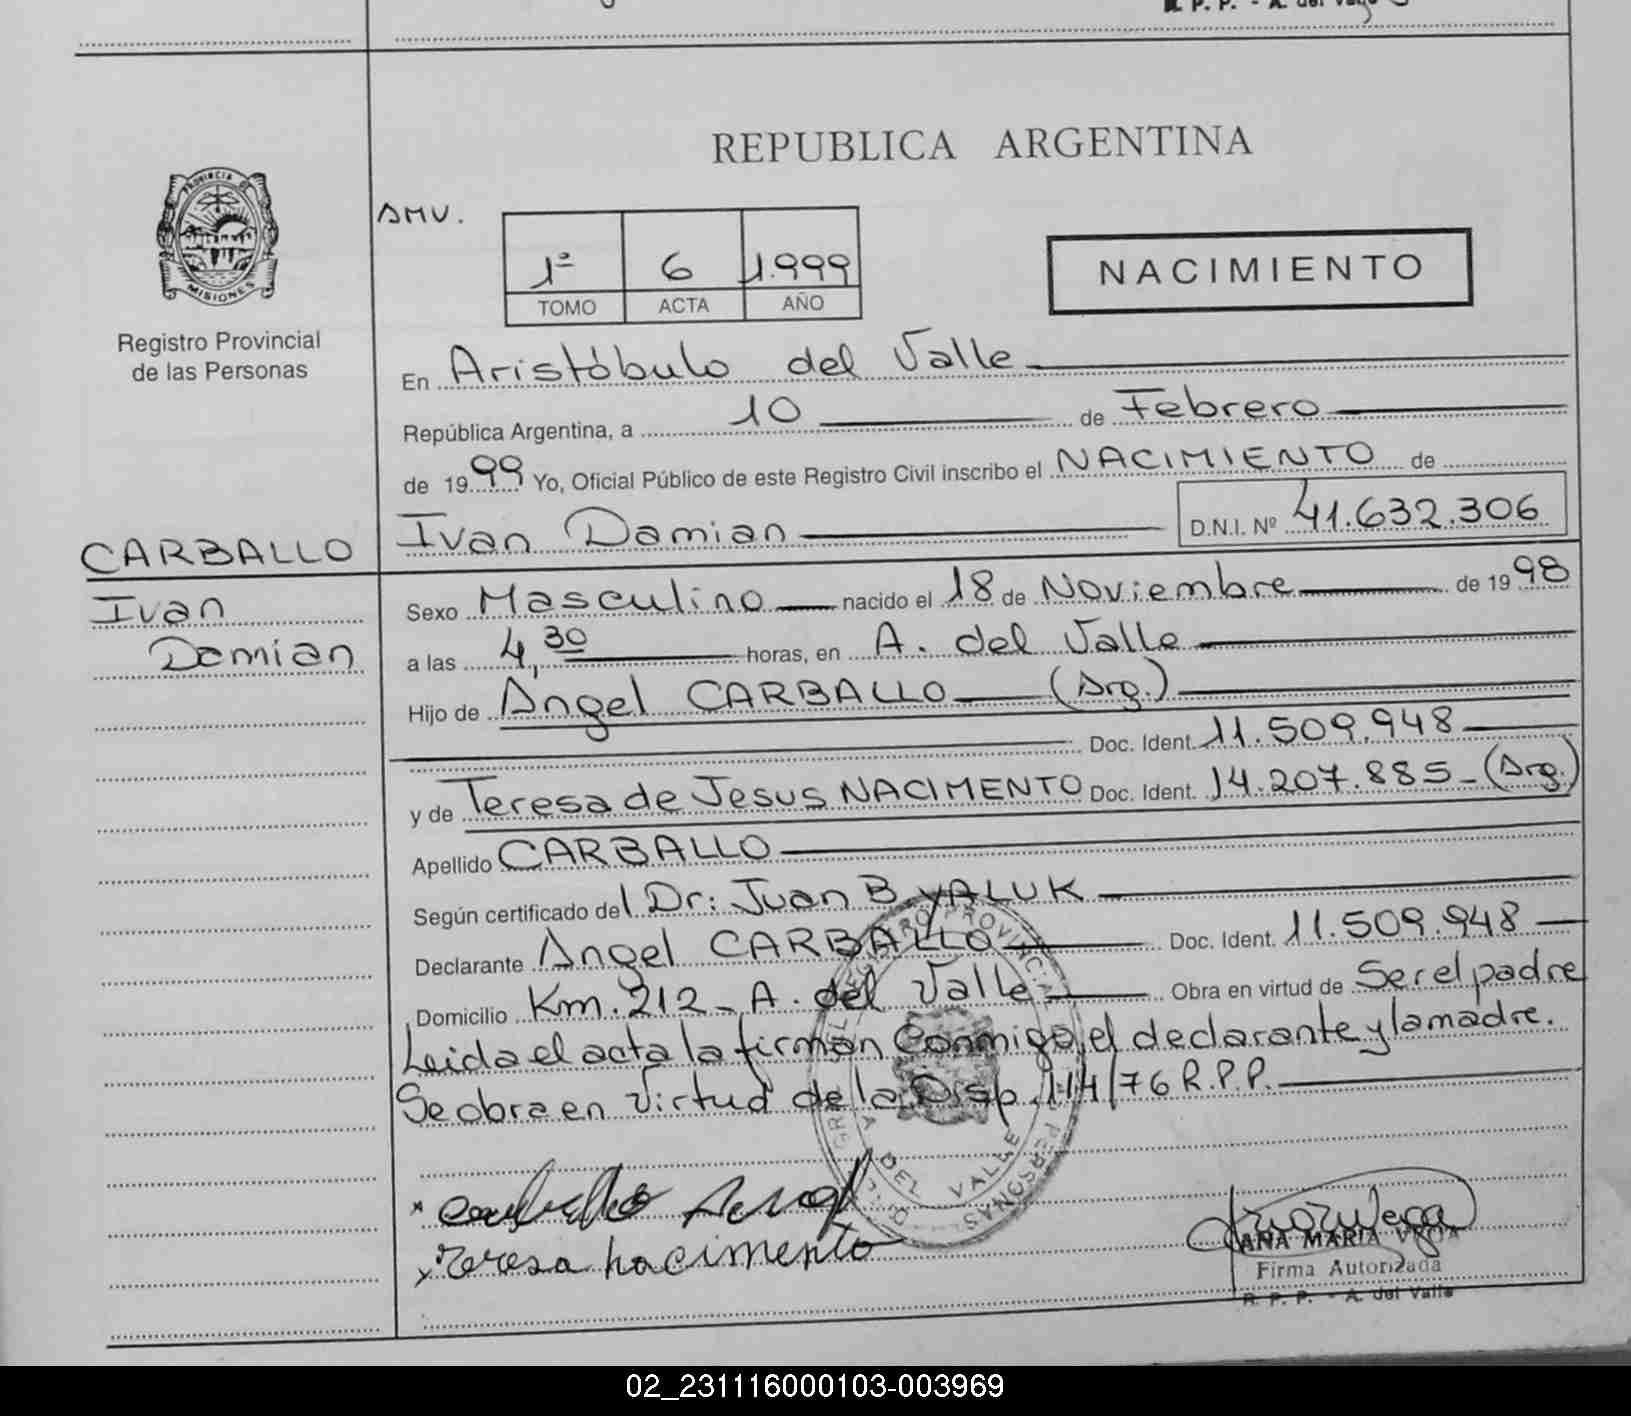 R. P. P. - A. del Valle
REPUBLICA ARGENTINA
PROVINCIA DE
MISIONES
Registro Provincial
de las Personas
AMV.
1º 6 1.999
TOMO ACTA AÑO
NACIMIENTO
En Aristóbulo del Valle
República Argentina, a 10 de Febrero
de 1999 Yo, Oficial Público de este Registro Civil inscribo el NACIMIENTO de
Ivan Damian D.N.I. Nº 41.632.306
CARBALLO
Ivan
Damian
Sexo Masculino nacido el 18 de Noviembre de 1998
a las 4,30 horas, en A. del Valle
Hijo de Angel CARBALLO (Arg.)
Doc. Ident. 11.509.948
y de Teresa de Jesus NACIMENTO Doc. Ident. 14.207.885 - (Arg.)
Apellido CARBALLO
Según certificado del Dr: Juan B YALUK
Declarante Angel CARBALLO Doc. Ident. 11.509.948
Domicilio Km. 212 - A. del Valle Obra en virtud de Ser el padre
Leida el acta la firman conmigo, el declarante y la madre.
Se obra en virtud de la Disp. 114/76 R.P.P.
REGISTRO PROVINCIAL DE LAS PERSONAS
A. DEL VALLE
x Carballo Angel
x Teresa nacimento
ANA MARIA VEGA
Firma Autorizada
R. P. P. - A. del Valle
02_231116000103-003969